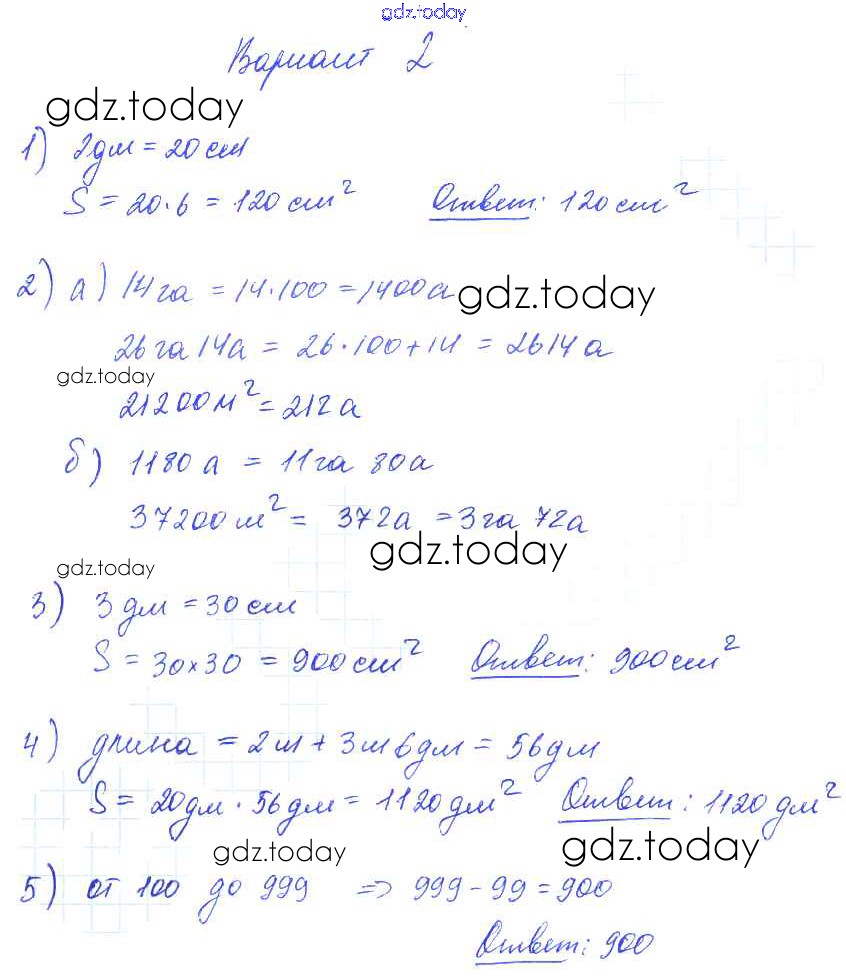 gdz.today
Вариант 2
gdz.today
1) 2дм = 20см
S = 20·6 = 120см² Ответ: 120см²
2) а) 14га = 14·100 = 1400а gdz.today
26га14а = 26·100+14 = 2614а
gdz.today
21200м² = 212а
б) 1180а = 11га 80а
37200м² = 372а = 3га 72а
gdz.today
gdz.today
3) 3дм = 30см
S = 30×30 = 900см² Ответ: 900см²
4) длина = 2м + 3м6дм = 56дм
S = 20дм · 56дм = 1120дм² Ответ: 1120дм²
gdz.today gdz.today
5) от 100 до 999 => 999-99 = 900
Ответ: 900